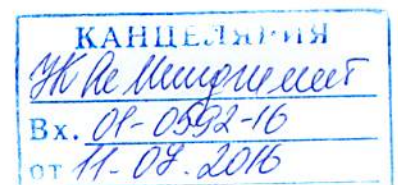 КАНЦЕЛЯРИЯ
УК Ре Менеджмент
Вх. 01-0592-16
от 11-07.2016